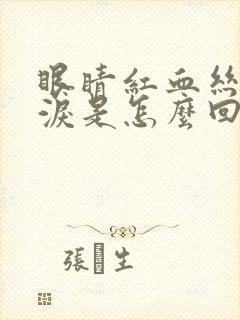 眼睛紅血絲
淚是怎麼回
張 生